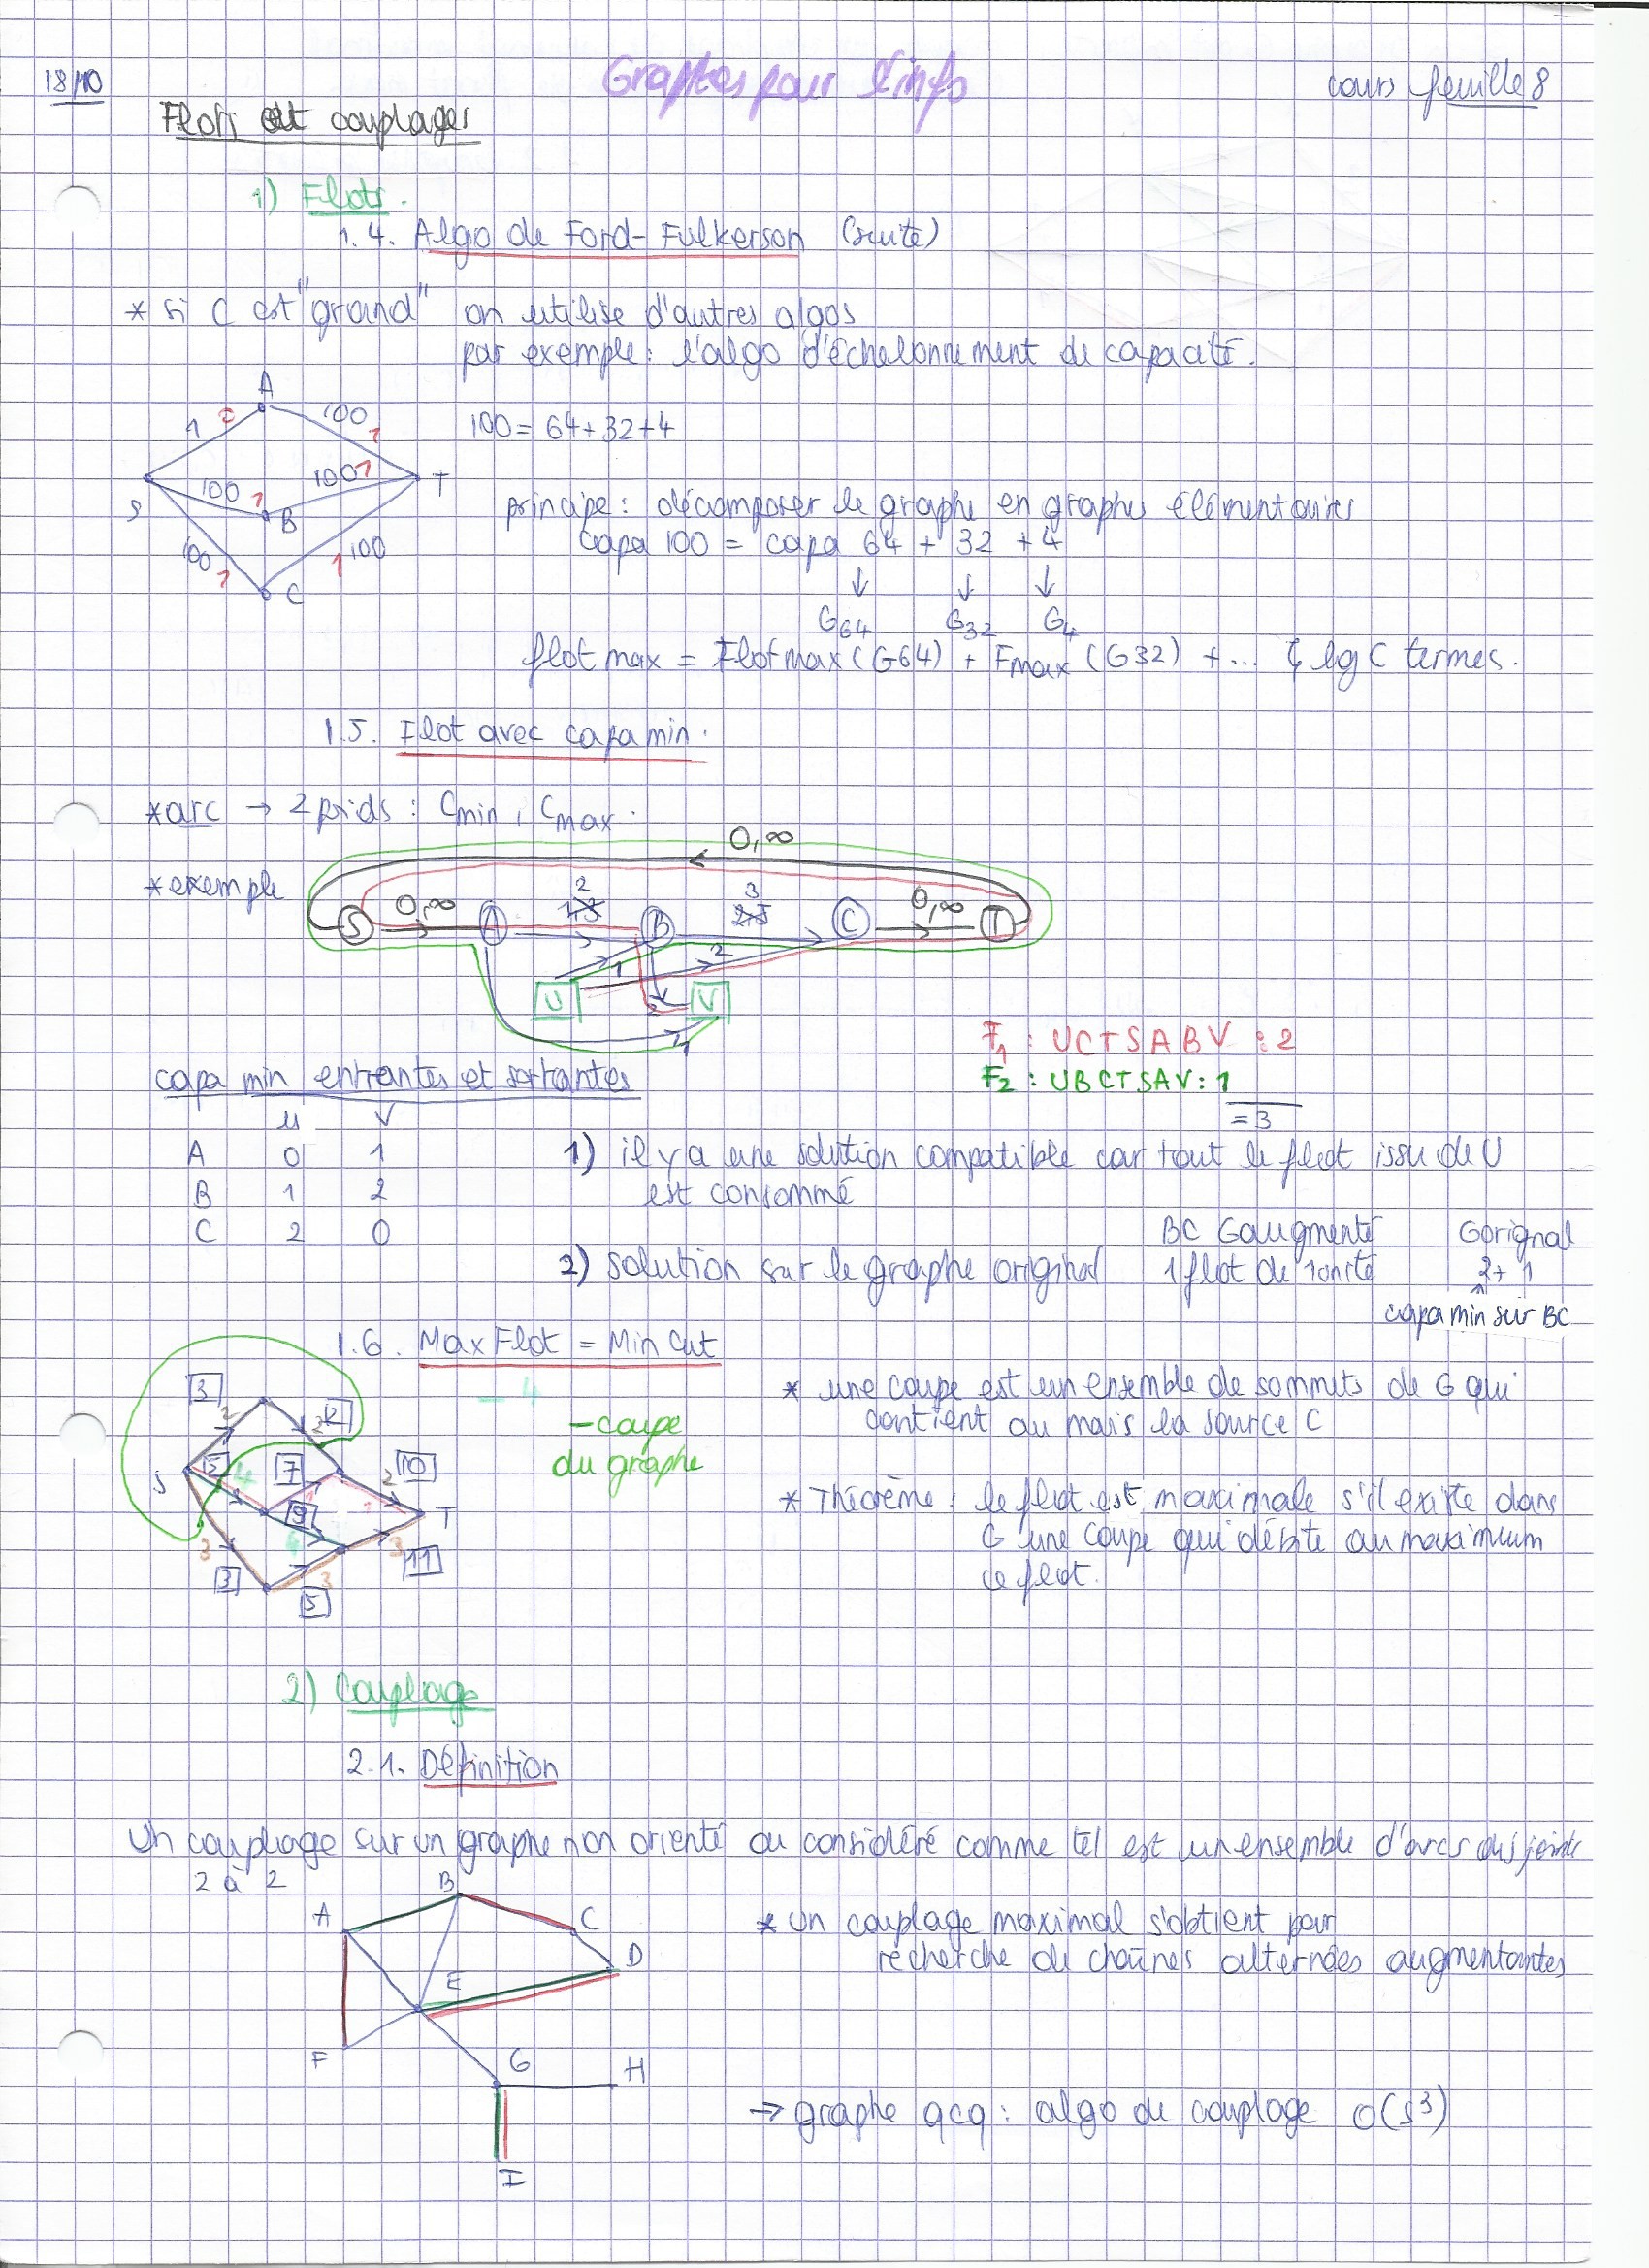 18/10
Graphes pour l'info
cours feuille 8
Flots et couplages
1) Flots.
1.4. Algo de Ford-Fulkerson (suite)
* si C est "grand" on utilise d'autres algos
par exemple : l'algo d'échelonnement de capacité.
A
1 0 100 1
100 = 64 + 32 + 4
S 100 1 B 100 1 T
principe : décomposer le graphe en graphes élémentaires
capa 100 = capa 64 + 32 + 4
100 1 C 1 100
↓ ↓ ↓
G64 G32 G4
flot max = Flot max (G64) + Fmax (G32) + ... lg C termes.
1.5. Flot avec capa min.
* arc → 2 poids : Cmin, Cmax.
0,∞
* exemple
2 3
S 0,∞ A B C 0,∞ T
1 2
U 2 V
1
F1 : UCTSABV : 2
F2 : UBCTSAV : 1
= 3
capa min entrantes et sortantes
u V
A 0 1
B 1 2
C 2 0
1) il y a une solution compatible car tout le flot issu de U
est consommé
BC G augmenté G orignal
2) solution sur le graphe original 1 flot de 1 unité 2 + 1
capa min sur BC
1.6. Max Flot = Min Cut
- 4
- coupe
du graphe
3 2 2 2
S 5 4 7 2 10
9 1 1 T
3 6 3 11
3 3 5
* une coupe est un ensemble de sommets de G qui
contient au mais la source C
* Théorème : le flot est maximale s'il existe dans
G une coupe qui débite au maximum
ce flot.
2) Couplage
2.1. Définition
Un couplage sur un graphe non orienté ou considéré comme tel est un ensemble d'arcs disjoints
2 à 2
B
A C
D
E
F
G H
I
* un couplage maximal s'obtient par
recherche de chaînes alternées augmentantes
→ graphe qcq : algo de couplage O(s³)